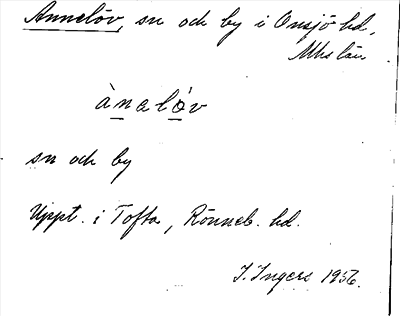 Annelöv, sn och by i Onsjö hd,
Mhs län
ànalóv
sn och by
Uppt. i Tofta, Rönneb. hd.
I. Ingers 1956.